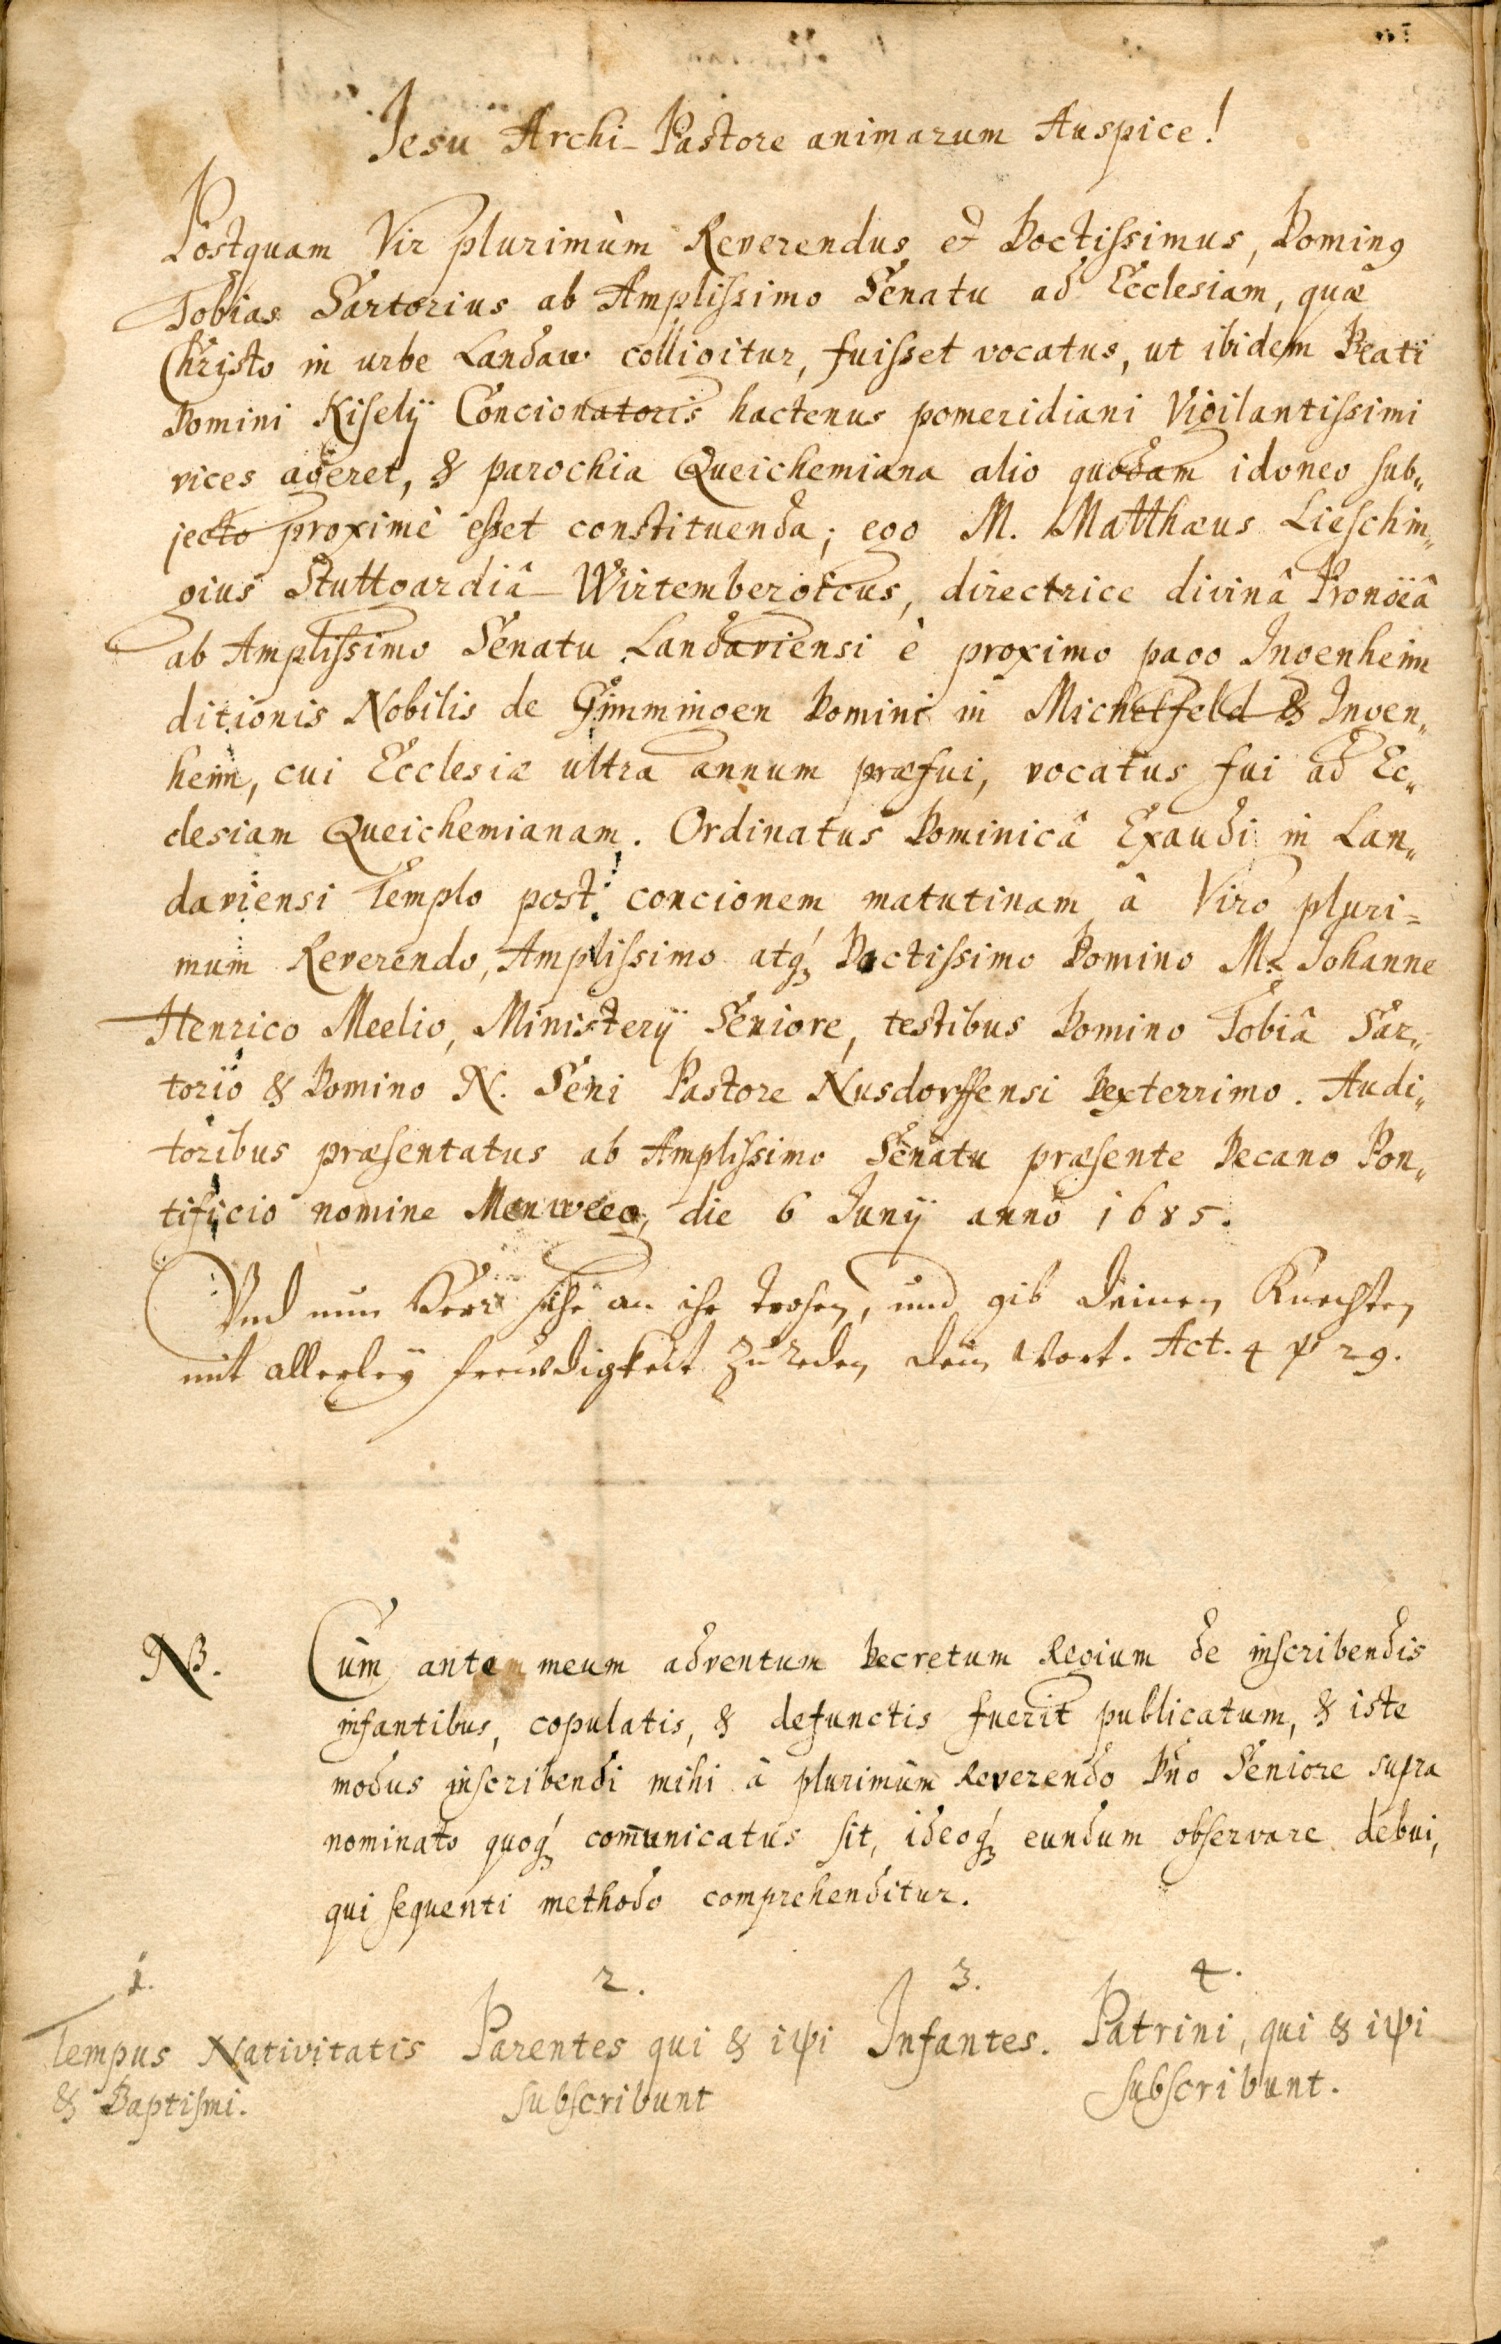 Jesu Archi-Pastore animarum Auspice!
Postquam Vir plurimùm Reverendus et Doctissimus, Dominꝰ
Tobias Sartorius ab Amplissimo Senatu ad Ecclesiam, quæ
Christo in urbe Landaw colligitur, fuisset vocatus, ut ibidem Beati
Domini Kiselÿ Concionatoris hactenus pomeridiani Vigilantissimi
vices ageret, & parochia Queichemiana alio quodam idoneo sub„
jecto proximè esset constituenda; ego M. Matthæus Lieschin„
gius Stuttgardiâ-Wirtembergicus, directrice divinâ Pronoeâ
ab Amplissimo Senatu Landaviensi è proximo pago Ingenheim
ditionis Nobilis de Gemmingen Domini in Michelfeld & Ingen„
heim, cui Ecclesiæ ultra annum præfui, vocatus fui ad Ec„
clesiam Queichemianam. Ordinatus Dominicâ Exaudi in Lan„
daviensi Templo post concionem matutinam â Viro pluri=
mum Reverendo, Amplissimo atq́ꝫ Doctissimo Domino M. Johanne
Henrico Meelio, Ministerÿ Seniore, testibus Domino Tobiâ Sar„
torio & Domino N. Seni Pastore Nusdorffensi Dexterrimo. Audi„
toribus præsentatus ab Amplissimo Senatu præsente Decano Pon„
tificio nomine Menweeg, die 6 Junÿ anno 1685.
Und nun Herr sihe an ihr trohen, und gib deinen Knechten
mit allerley freudigkeit zu reden dein Wort. Act. 4 ℣ 29.
NB. Cùm ante meum adventum Decretum Regium de inscribendis
infantibus, copulatis, & defunctis fuerit publicatum, & iste
modus inscribendi mihi â plurimùm Reverendo Dn̄o Seniore supra
nominato quoq́ꝫ com̄unicatus sit, ideoq́ꝫ eundum observare debui,
qui sequenti methodo comprehenditur.
1. 2. 3. 4.
Tempus Nativitatis Parentes qui & ipsi Infantes. Patrini, qui & ipsi
& Baptismi. subscribunt subscribunt.